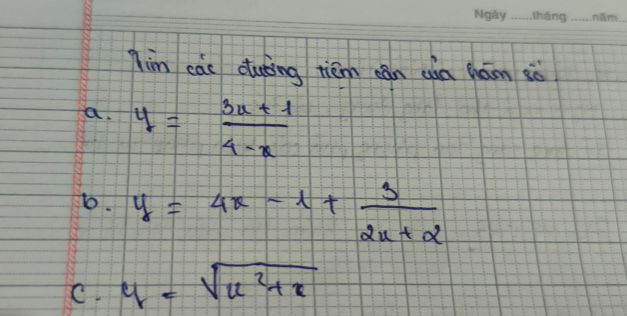 Ngày ......tháng ......năm...
Tìm các đường tiệm cận của hàm số
a. y = \frac{3x + 1}{4 - x}
b. y = 4x - 1 + \frac{3}{2x + 2}
c. y = \sqrt{x^2 + x}